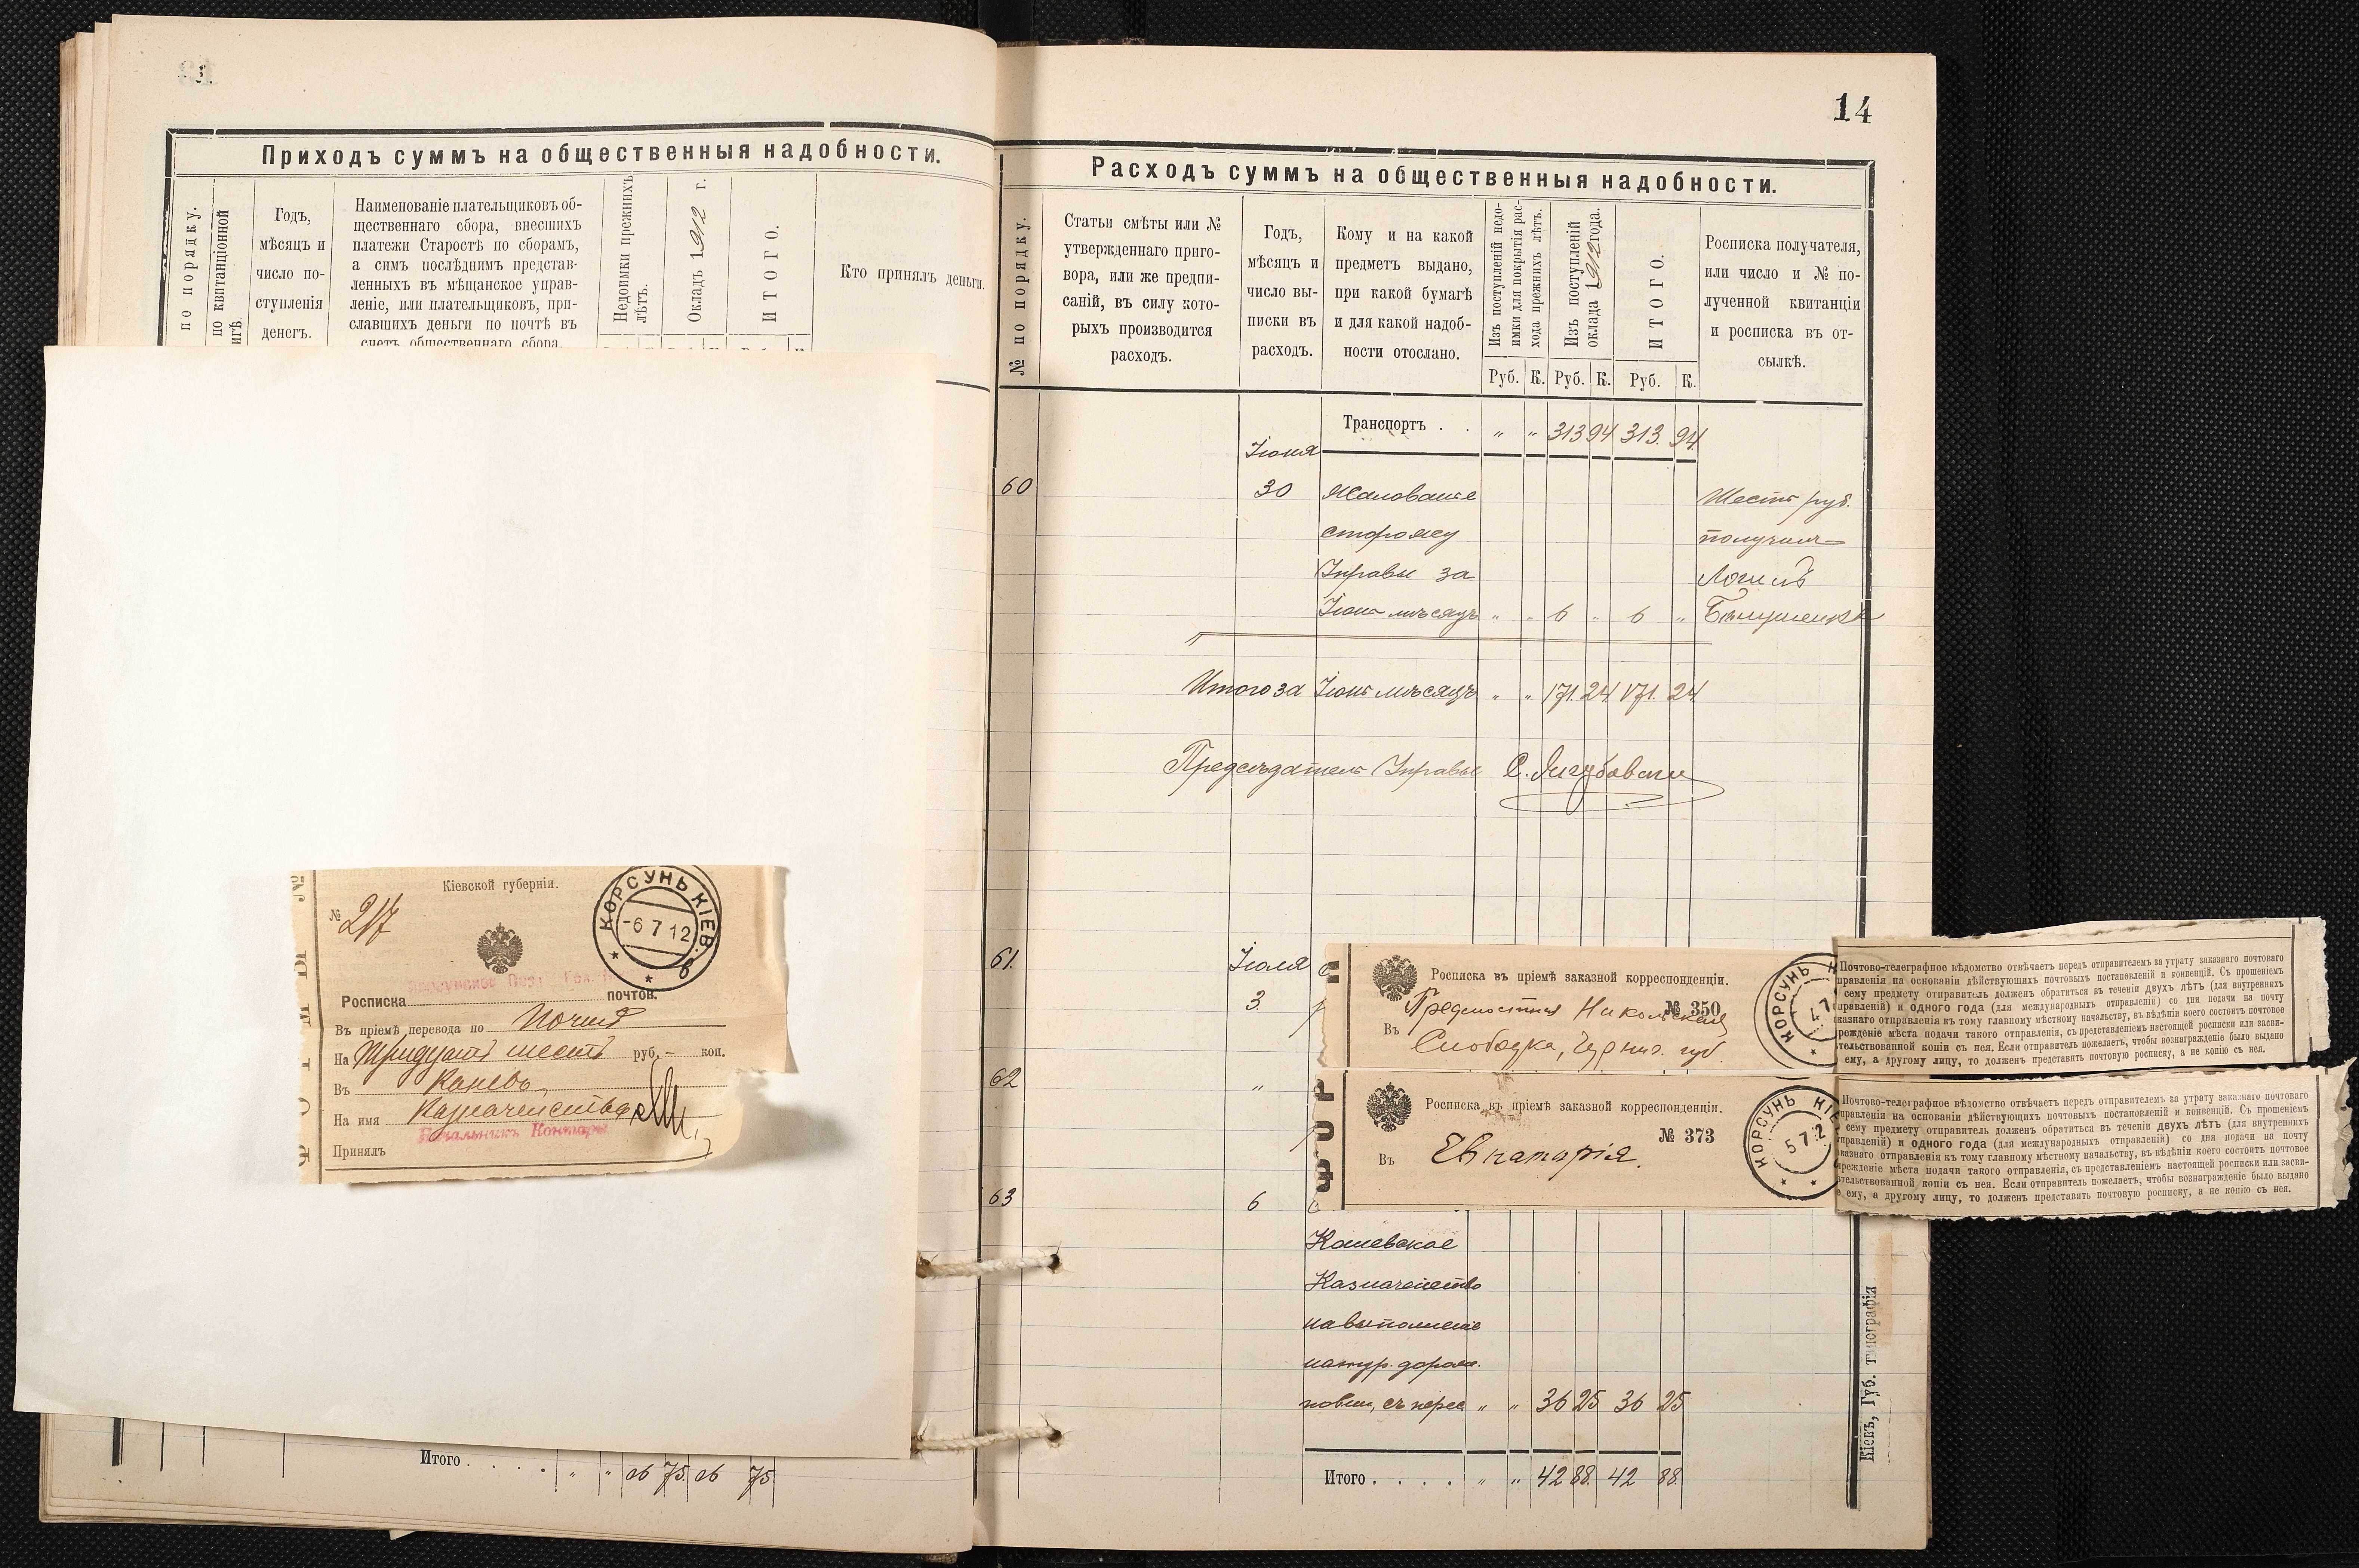 Приходъ суммъ на общественныя надобности.
по порядку.
по квитанціонной
Годъ,
мѣсяцъ и
число по-
ступленія
денегъ.
Наименованіе плательщиковъ об-
щественнаго сбора, внесшихъ
платежи Старостѣ по сборамъ,
а симъ послѣднимъ представ-
ленныхъ въ мѣщанское управ-
леніе, или плательщиковъ, при-
славшихъ деньги по почтѣ въ
счетъ общественнаго сбора.
Недоимки прежнихъ
лѣтъ.
Окладъ 1912 г.
ИТОГО.
Кто принялъ деньги.
Кіевской губерніи.
№ 217
КОРСУНЬ КІЕВ.
-6 7 12
Росписка почтов.
Въ пріемѣ перевода по Почтѣ
На Тридцать шесть руб. - коп.
Въ Каневъ
На имя Казначейства
Начальникъ Конторы
Принялъ
Итого . . . . „ „ 26 75 26 75
14
Расходъ суммъ на общественныя надобности.
№ по порядку.
Статьи смѣты или №
утвержденнаго приго-
вора, или же предпи-
саній, въ силу кото-
рыхъ производится
расходъ.
Годъ,
мѣсяцъ и
число вы-
писки въ
расходъ.
Кому и на какой
предметъ выдано,
при какой бумагѣ
и для какой надоб-
ности отослано.
Изъ поступленій недо-
имки для покрытія рас-
хода прежнихъ лѣтъ.
Изъ поступленій
оклада 1912 года.
ИТОГО.
Росписка получателя,
или число и № по-
лученной квитанціи
и росписка въ от-
сылкѣ.
Руб. К. Руб. К. Руб. К.
Транспортъ . . „ „ 313 94 313. 94
Іюня
60 30 Жалованіе Шесть руб.
сторожу получилъ
Управы за
Іюнь мѣсяцъ „ „ 6 „ 6 „
Итого за Іюнь мѣсяцъ „ „ 171. 24 171. 24
Предсѣдатель Управы
61. Іюля
3
Росписка въ пріемѣ заказной корреспонденціи.
№ 350
Въ Предмостная Никольская
Слободка, Черниг. губ.
КОРСУНЬ К
4 7
Почтово-телеграфное вѣдомство отвѣчаетъ передъ отправителемъ за утрату заказнаго почтоваго
правленія на основаніи дѣйствующихъ почтовыхъ постановленій и конвенцій. Съ прошеніемъ
сему предмету отправитель долженъ обратиться въ теченіи двухъ лѣтъ (для внутреннихъ
правленій) и одного года (для международныхъ отправленій) со дня подачи на почту
казнаго отправленія къ тому главному мѣстному начальству, въ вѣдѣніи коего состоитъ почтовое
реждение мѣста подачи такого отправленія, съ представленіемъ настоящей росписки или засви-
тельствованной копіи съ нея. Если отправитель пожелаетъ, чтобы вознагражденіе было выдано
ему, а другому лицу, то долженъ представить почтовую росписку, а не копію съ нея.
62 „
Росписка въ пріемѣ заказной корреспонденціи.
№ 373
Въ Евпаторія.
КОРСУНЬ КІЕ
5 7 12
Почтово-телеграфное вѣдомство отвѣчаетъ передъ отправителемъ за утрату заказнаго почтоваго
правленія на основаніи дѣйствующихъ почтовыхъ постановленій и конвенцій. Съ прошеніемъ
сему предмету отправитель долженъ обратиться въ теченіи двухъ лѣтъ (для внутреннихъ
правленій) и одного года (для международныхъ отправленій) со дня подачи на почту
казнаго отправленія къ тому главному мѣстному начальству, въ вѣдѣніи коего состоитъ почтовое
реждение мѣста подачи такого отправленія, съ представленіемъ настоящей росписки или засви-
тельствованной копіи съ нея. Если отправитель пожелаетъ, чтобы вознагражденіе было выдано
ему, а другому лицу, то долженъ представить почтовую росписку, а не копію съ нея.
63 6
Каневское
Казначейство
на выполненіе
натур. дорож.
повин., съ перес „ „ 36 25 36 25
Итого . . . . „ „ 42 88. 42 88.
Кіевъ, Губ. типографія